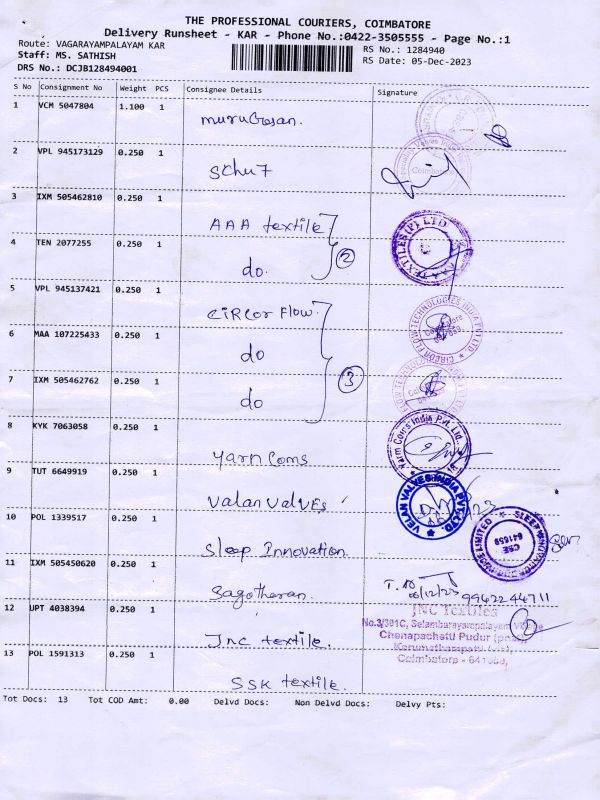 THE PROFESSIONAL COURIERS, COIMBATORE
Delivery Runsheet - KAR - Phone No.:0422-3505555 - Page No.:1
Route: VAGARAYAMPALAYAM KAR
RS No.: 1284940
Staff: MS. SATHISH
RS Date: 05-Dec-2023
DRS No.: DCJB128494001
S No Consignment No Weight PCS Consignee Details Signature
1 VCM 5047804 1.100 1 murugesan.
2 VPL 945173129 0.250 1
3 IXM 505462810 0.250 1 AAA textile
TEXTILES (P) LTD
4 TEN 2077255 0.250 1 do. 2
5 VPL 945137421 0.250 1 CIRCOR FLOW.
CIRCOR FLOW TECHNOLOGIES INDIA PVT LTD
6 MAA 107225433 0.250 1 do
7 IXM 505462762 0.250 1 do 3
8 KYK 7063058 0.250 1 yarn Coms
Yarn Coms India Pvt. Ltd.
9 TUT 6649919 0.250 1 valan valvEs
VELAN VALVES INDIA PVT. LTD.
10 POL 1339517 0.250 1 Sleep Innovation.
CBE
641659
11 IXM 505450620 0.250 1 Sagotharan.
6/12/23 9942244711
12 UPT 4038394 0.250 1 Jnc textile.
JNC Textiles
No.3/391C, Selambarayampalayam
Chenapachetti Pudur
Coimbatore - 641659,
13 POL 1591313 0.250 1 SSK textile.
Tot Docs: 13 Tot COD Amt: 0.00 Delvd Docs: Non Delvd Docs: Delvy Pts: